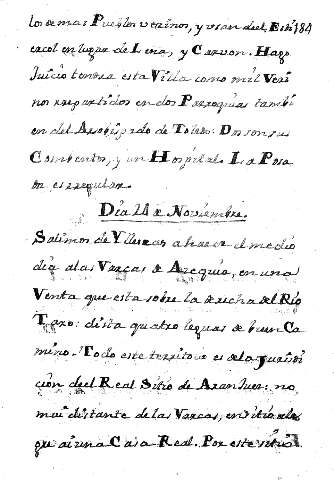 los demas Pueblos vezinos, y usan del Esti 184
ercol en lugar de Lena, y Carvon. Hago
Juicio tendra esta Villa como mil Veci
nos repartidos en dos Parroquias tambi
en del Arzobispado de Toledo: Dos son sus
Combentos, y un Hospital. La Posa
da es regular.
Dia 24 de Noviembre.
Salimos de Yllescas a hacer el medio
dia a las Varcas de Azequia, en una
Venta que esta sobre la derecha del Rio
Taxo: dista quatro leguas de buen Ca
mino. Todo este territorio es de la Jurisdi
cion del Real Sitio de Aranjuez: no
mui distante de las Varcas, en sitio
que ai una Casa Real. Por este sitio